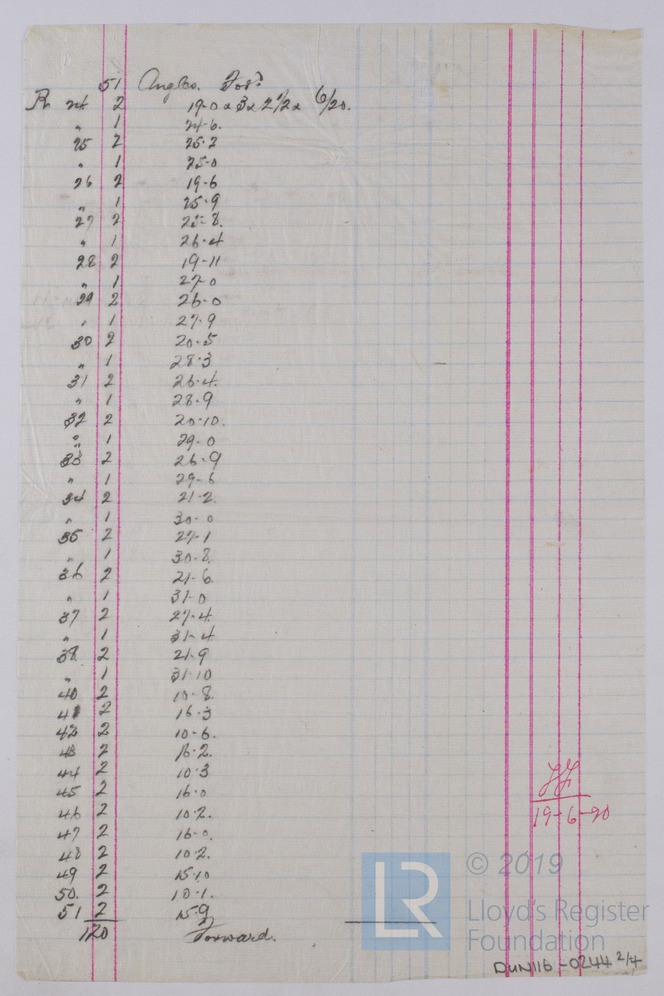 51 Angles. For?
Fr 24 2 19-0 x 3 x 2 1/2 x 6/20.
" 1 24-6.
25 2 25-2
" 1 25-0
26 2 19-6
" 1 25-9
27 2 25-8.
" 1 26-4
28 2 19-11
" 1 27-0
29 2 26-0
" 1 27-9
30 2 20-5
" 1 28-3
31 2 26-4.
" 1 28-9
32 2 20-10.
" 1 29-0
33 2 26-9
" 1 29-6
34 2 21-2.
" 1 30-0
35 2 27-1
" 1 30-8.
36 2 21-6.
" 1 31-0
37 2 27-4
" 1 31-4
38. 2 21-9
" 1 31-10
40 2 10-8.
41 2 16-3
42 2 10-6.
43 2 16-2.
44 2 10-3
45 2 16-0
46 2 10-2.
47 2 16-0.
48 2 10-2.
49 2 15-10
50. 2 10-1.
51 2 15-9
120 Forward.
19-6-90
LR © 2019
Lloyd's Register
Foundation
DUN116-0244 2/4